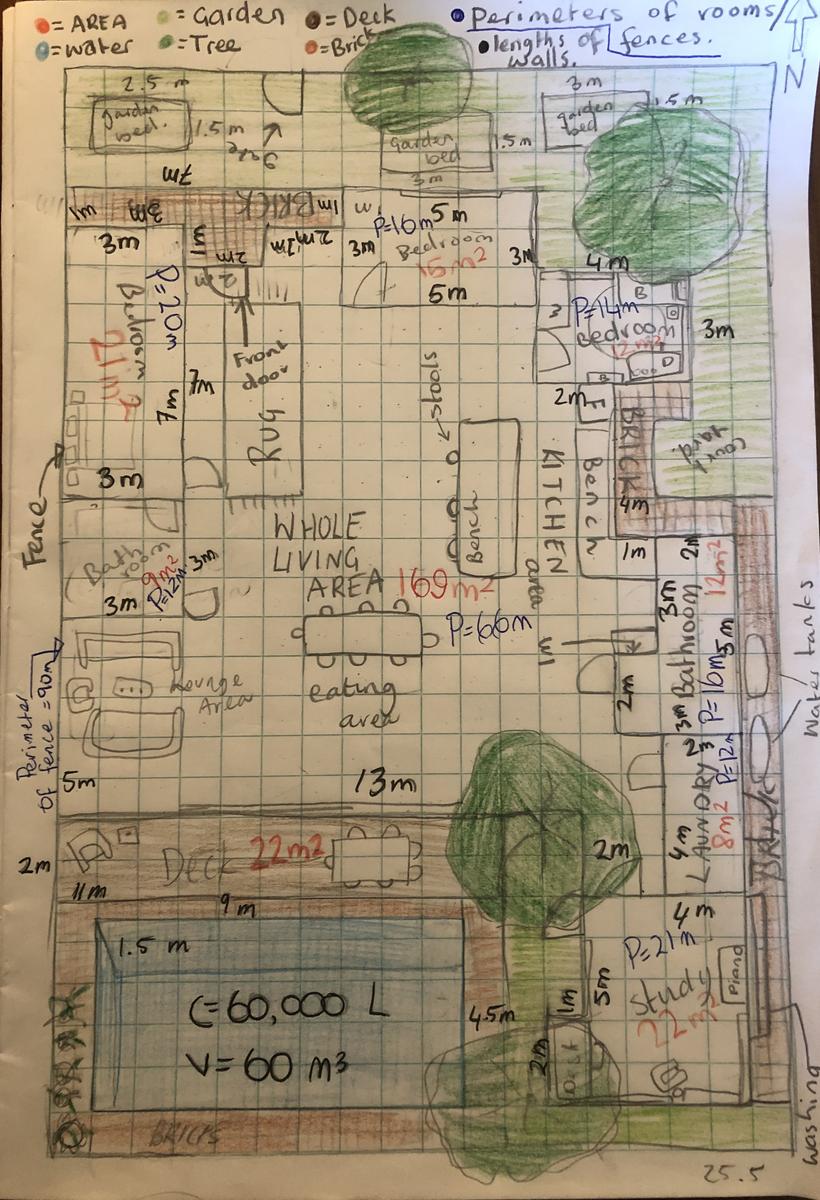 = AREA = Garden = Deck Perimeters of rooms/
= water = Tree = Brick lengths of fences.
walls.
N
2.5 m
garden
bed.
1.5 m
gate
garden
bed
1.5m
3m
3m
garden
bed
1.5m
7m
1m
3m
BRICK
1m
3m
1m
2m
2m
2m
W
P=16m
5m
3m
Bedroom
15m²
3m
5m
4m
W
P=14m
B
Bedroom
12m²
3m
D
B
2m
F
P=20m
Bedroom
21m²
7m
7m
3m
Front
door
RUG
stools
Bench
KITCHEN
area
Bench
BRICK
4m
Court
yard.
1m
2m
Fence
Bath
room
9m²
P=12m
3m
3m
WHOLE
LIVING
AREA 169m²
P=66m
eating
area
Lounge
Area
3m
Bathroom
12m²
5m
P=16m
3m
2m
Water tanks
Perimeter
of fence = 90m
5m
13m
2
P=12m
LAUNDRY
4m
8m²
BRICK
2m
Deck 22m²
11m
2m
9m
1.5 m
C=60,000 L
V=60 m³
4.5m
4m
P=21m
Study
22m²
5m
1m
2m
Desk
Piano
washing
BRICKS
25.5